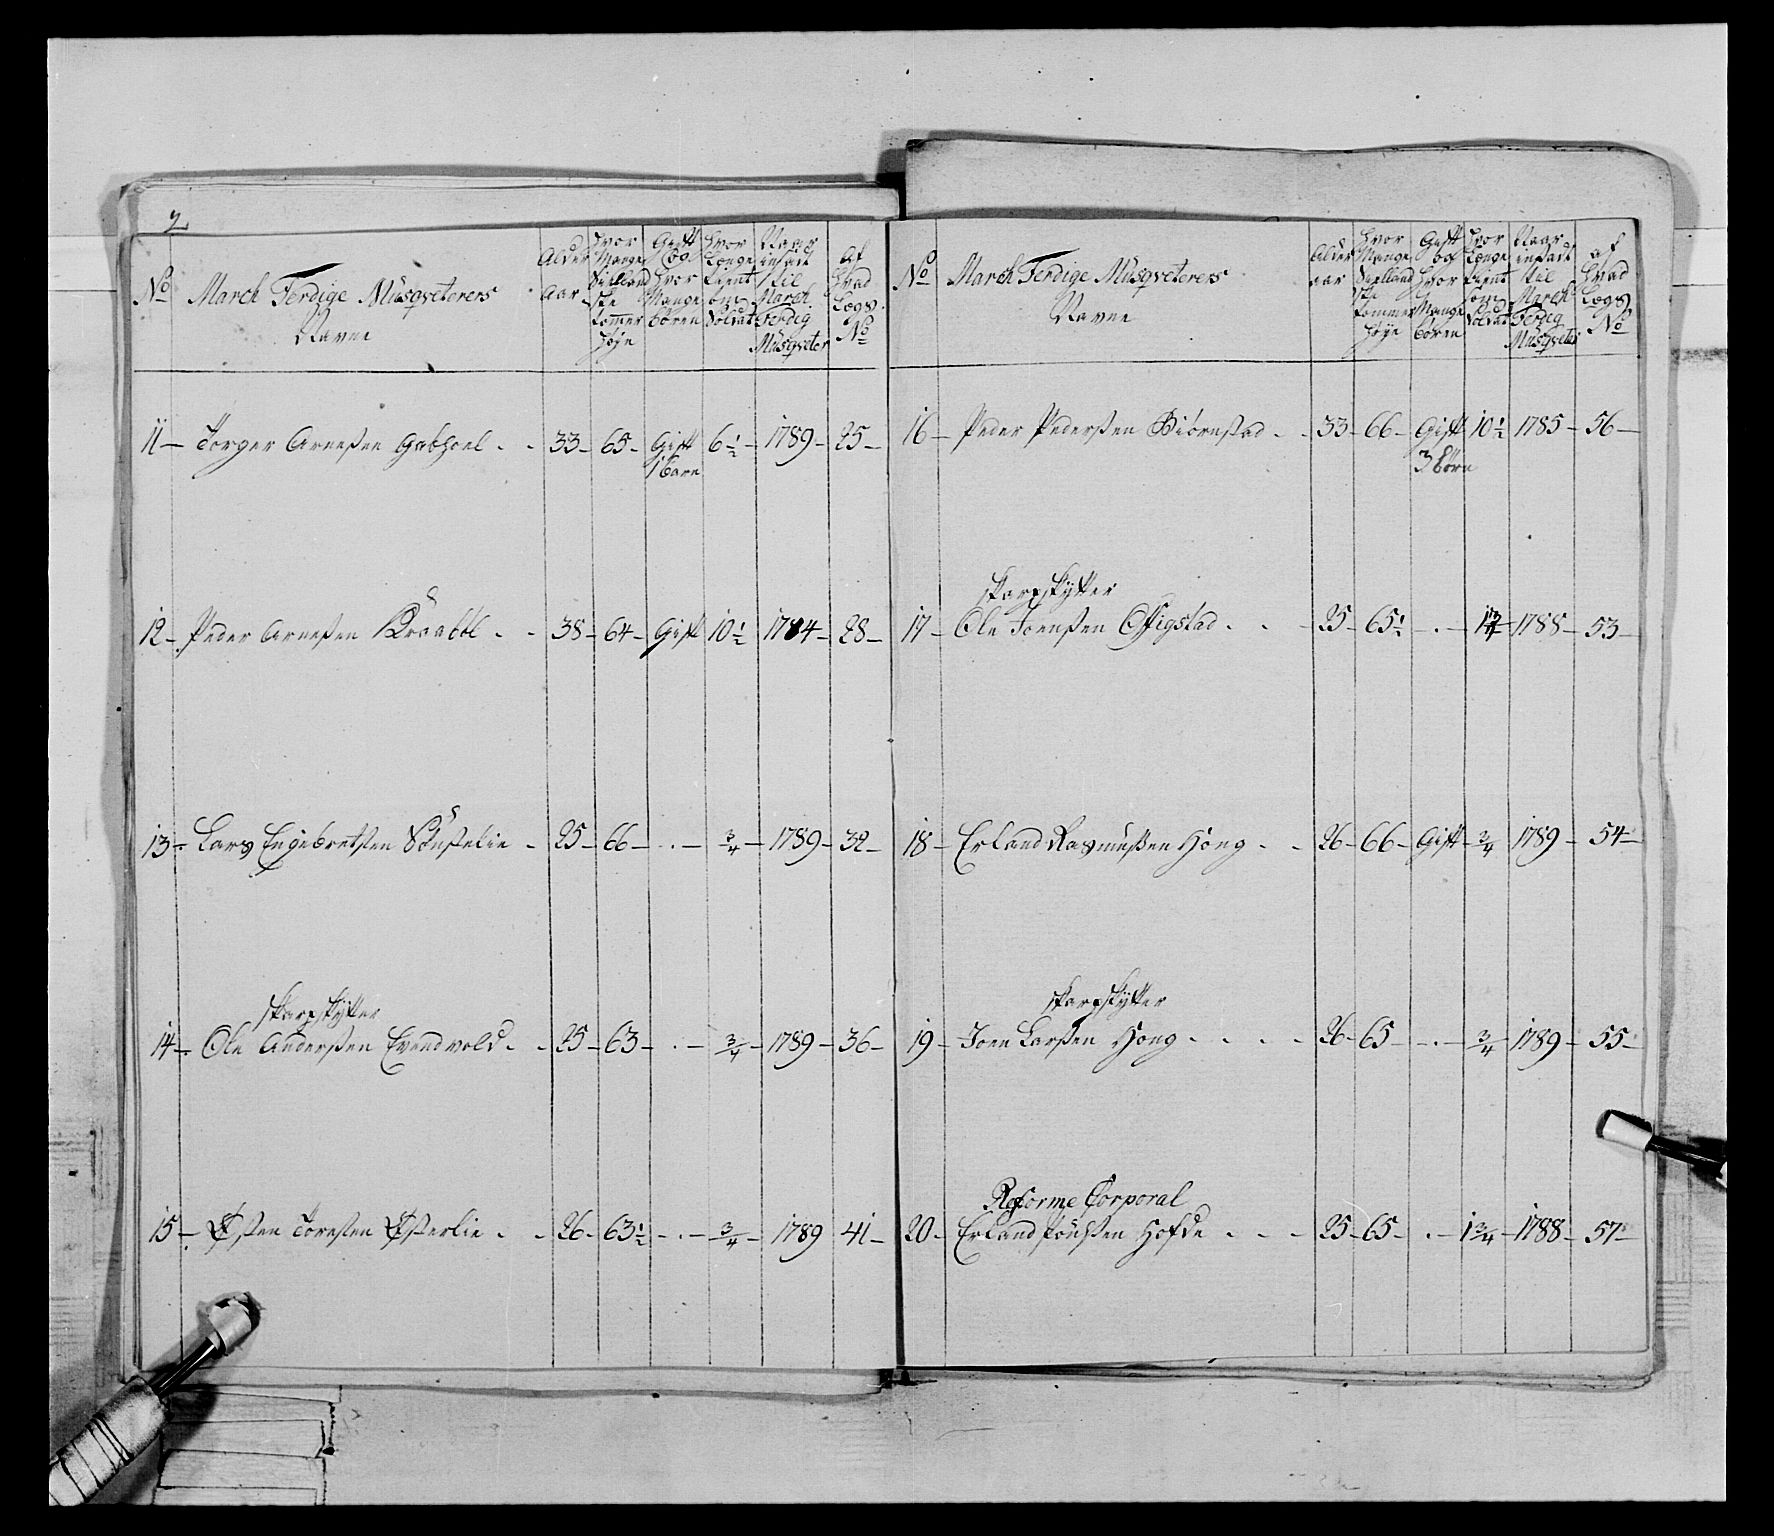 2
No March Ferdige Musqveterers Navne | Alder Aar | Hvor Mange Siellandske tommer høye | Gift og Hvor Mange børen | Hvor Længe tient som Soldat | Naar indsadt til March Ferdig Musqveter | Af Hvad Lægs No
11 – Torger Arneßen Gabhoel - - 33 – 65 – Gift 1 barn 6½ – 1789 – 25 –
12 – Peder Arneßen Kraabøl - - 38 – 64 – Gift 10½ 1784 – 28 –
13 – Lars Engebretsen - 25 – 66 – . – ¾ – 1789 – 32 –
skarpskytter
14 – Ole Anderßen Evendvold - - 25 – 63 – . – ¾ – 1789 – 36 –
15 – Østen Toresen Østerlie - - 26 – 63½ – . – ¾ – 1789 41 –
No March Ferdige Musqveterers Navne | Alder aar | Hvor Mange Siellandske tommer høye | Gift og Hvor Mange børen | Hvor Længe tient som Soldat | Naar indsadt til March Ferdig Musqveter | af Hvad Lægs No
16 – Peder Pederßen Biørnstad - - 33 – 66 – Gift 3 børn 10½ 1785 – 56 –
skarpskytter
17 – Ole Joenßen - - - 25 – 65½ – . – 1788 – 53 –
18 – Erland Rasmußen Høng - - 26 – 66 – Gift – ¾ 1789 – 54 –
skarpskytter
19 – Joen Larßen Høng - - - - 26 – 65 – . – ¾ – 1789 – 55 –
Reforme Corporal
20 – Erland Hofde - - - 25 – 65 – . – 1¾ – 1788 – 57 –